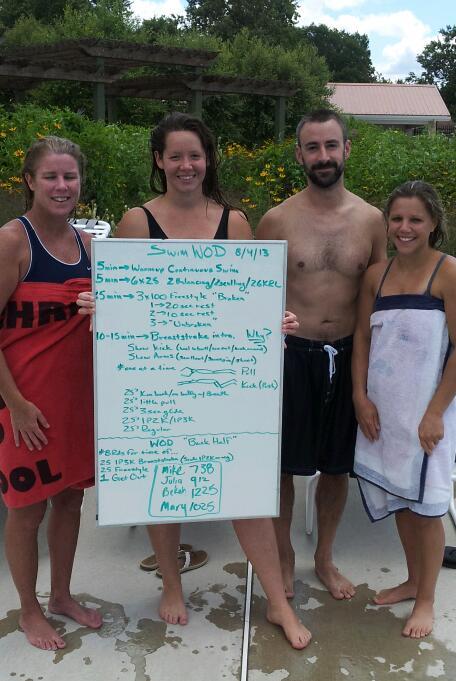 Swim WOD 8/4/13
5min → Warmup Continuous Swim
5min → 6x25 2 Balancing/2sculling/2GKZL
15min → 3x100 Freestyle "Broken"
1 → 20 sec rest
2 → 10 sec rest
3 → "Unbroken"
10-15min → Breaststroke intro. Why?
Show Kick
Show Arms
*one at a time
Pull
Kick
25's Kim back/on belly w/Breath
25's little pull
25's 3 sec glide
25's 1P2K/1P3K
25's Regular
WOD "Back Half"
*8 Rds for time of...
25 1P3K Breaststroke
25 Freestyle
1 Get Out
Mike 738
Julia 912
Bekah 1225
Mary 1025
CHR
OOL